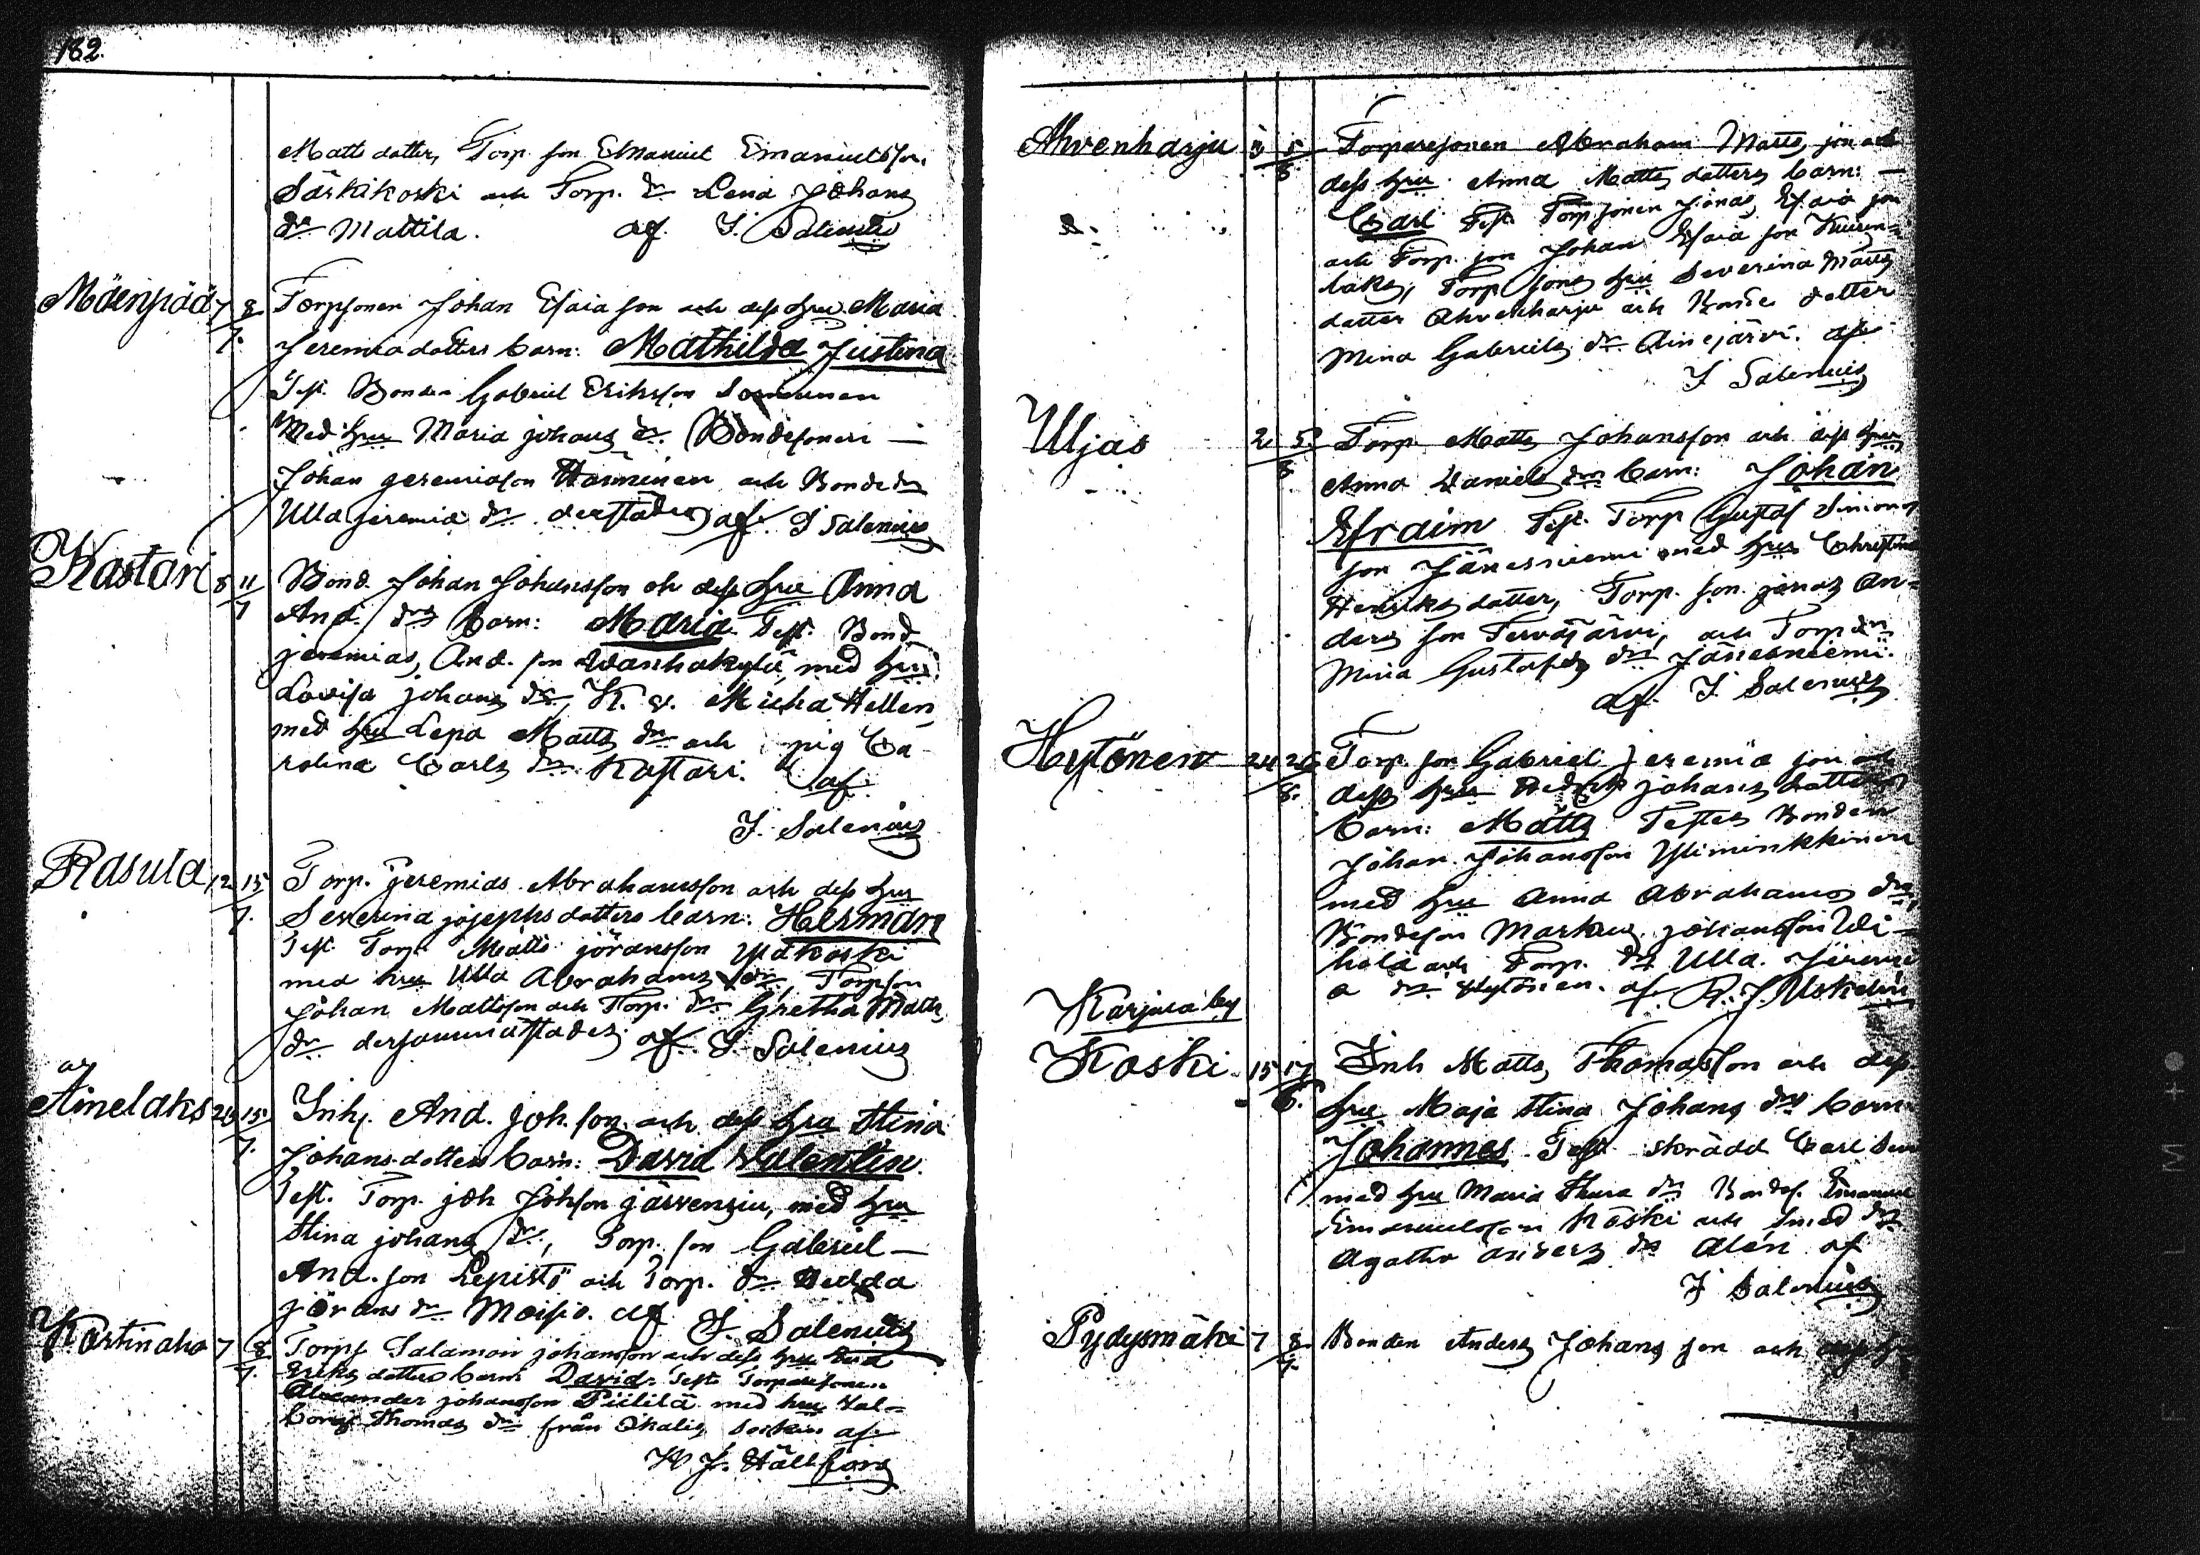 182.
Matts dotter, Torp. son Emanuel Emanuelsson
Särkikoski och Torp. dr Lena Johans
dr Mattila. af. J. Salenius
Mäenpää 7 8/7. Torpsonen Johan Esaia son och dess hru Maria
Jeremiadotters barn: Mathilda Justina
Test. Bonden Gabriel Eriksson
Med hru Maria johans dr. Bondesonen —
Johan Jeremiason Hanninen och Bonde dr
Ulla jeremia dr derstädes af. J Salenius
Kastari 8 11/7 Bond. Johan Johansson och dess hru Anna
And. drs barn: Maria Test. Bond
jeremias And. son Wanhakylä, med hru
Lovisa johans dr, K. v. Micha Hellen,
med hru Lepa Matts dr och pig Ca-
rolina Carls dr Kastari. af.
J. Salenius
Rasula 12 15/7. Torp. Jeremias Abrahamsson och dess hru
Severina josephsdotters barn: Herman
Test. Torp. Matts jöransson Yläkoski
med hru Ulla Abrahams dr, Torpson
Johan Mattsson och Torp. dr Gretha Matts
dr dersammastädes af. J. Salenius
Ainelaks 15/7. Inh. And. Joh. son och dess hru Stina
Johansdotters barn: David Valentin.
Test. Torp. joh Johson järvensiu, med hru
Stina johans dr, Torp. son Gabriel —
And. son Lepistö och Torp. dr Hedda
jörans dr Moisio. af J. Salenius
Kortinaho 7 8/7. Torps Salamon johansson och dess hru
Eriks dotters barn David. Test. Torparesonen
Alexander johansson Piililä med hru Val-
borg Thomas dr från Ikalis socken af
K J. Hällfors
Ahvenharju 3 5/8. Torparesonen Abraham Matts son och
dess hru Anna Matts dotters barn: —
Carl Test Torpsonen Jonas Esaia son
och Torp. son Johan Esaia son Kuusen-
laks, Torp sons hru Severina Matts
dotter Ahvenharju och Bonde dotter
Mina Gabriels dr. Ainejärvi. af
J Salenius
Uljas 2 5/8 Torp. Matts Johansson och dess hru
Anna Daniels drs barn: Johan
Efraim Test. Torp Gustaf Simons
son Jänesniemi med hru Christina
Henriks dotter, Torp. son jonas An-
ders son Tervajärvi, och Torp dr
Mina Gustafs dr Jänesniemi.
af. J. Salenius
Hytönen 24 26/8. Torp. son Gabriel Jeremia son och
dess hru Hedvik johans dotters
barn: Matts Testes Bonden
Johan Johansson Yliminkkinen
med hru Anna Abrahams dr,
Bondeson Markus johansson Wi-
hola och Torp. dr Ulla Jeremi
a dr Hytönen. af
Karjala by
Koski 15 17/6. Inh Matts Thomasson och dess
hru Maja Stina Johans drs barn
Johannes Test. skrädd Carl
med hru Maria Thura dr Bondes. Emanuel
Emanuelsson Koski och smed dr
Agatha anders dr Alén af
J Salenius
Pydysmäki 7 8/7. Bonden Anders Johans son och dess hru